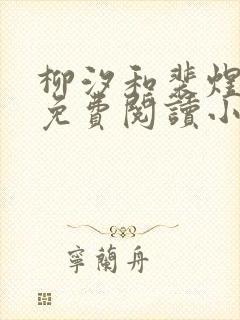 柳汐和裴煌
免費閱讀小
寧蘭舟